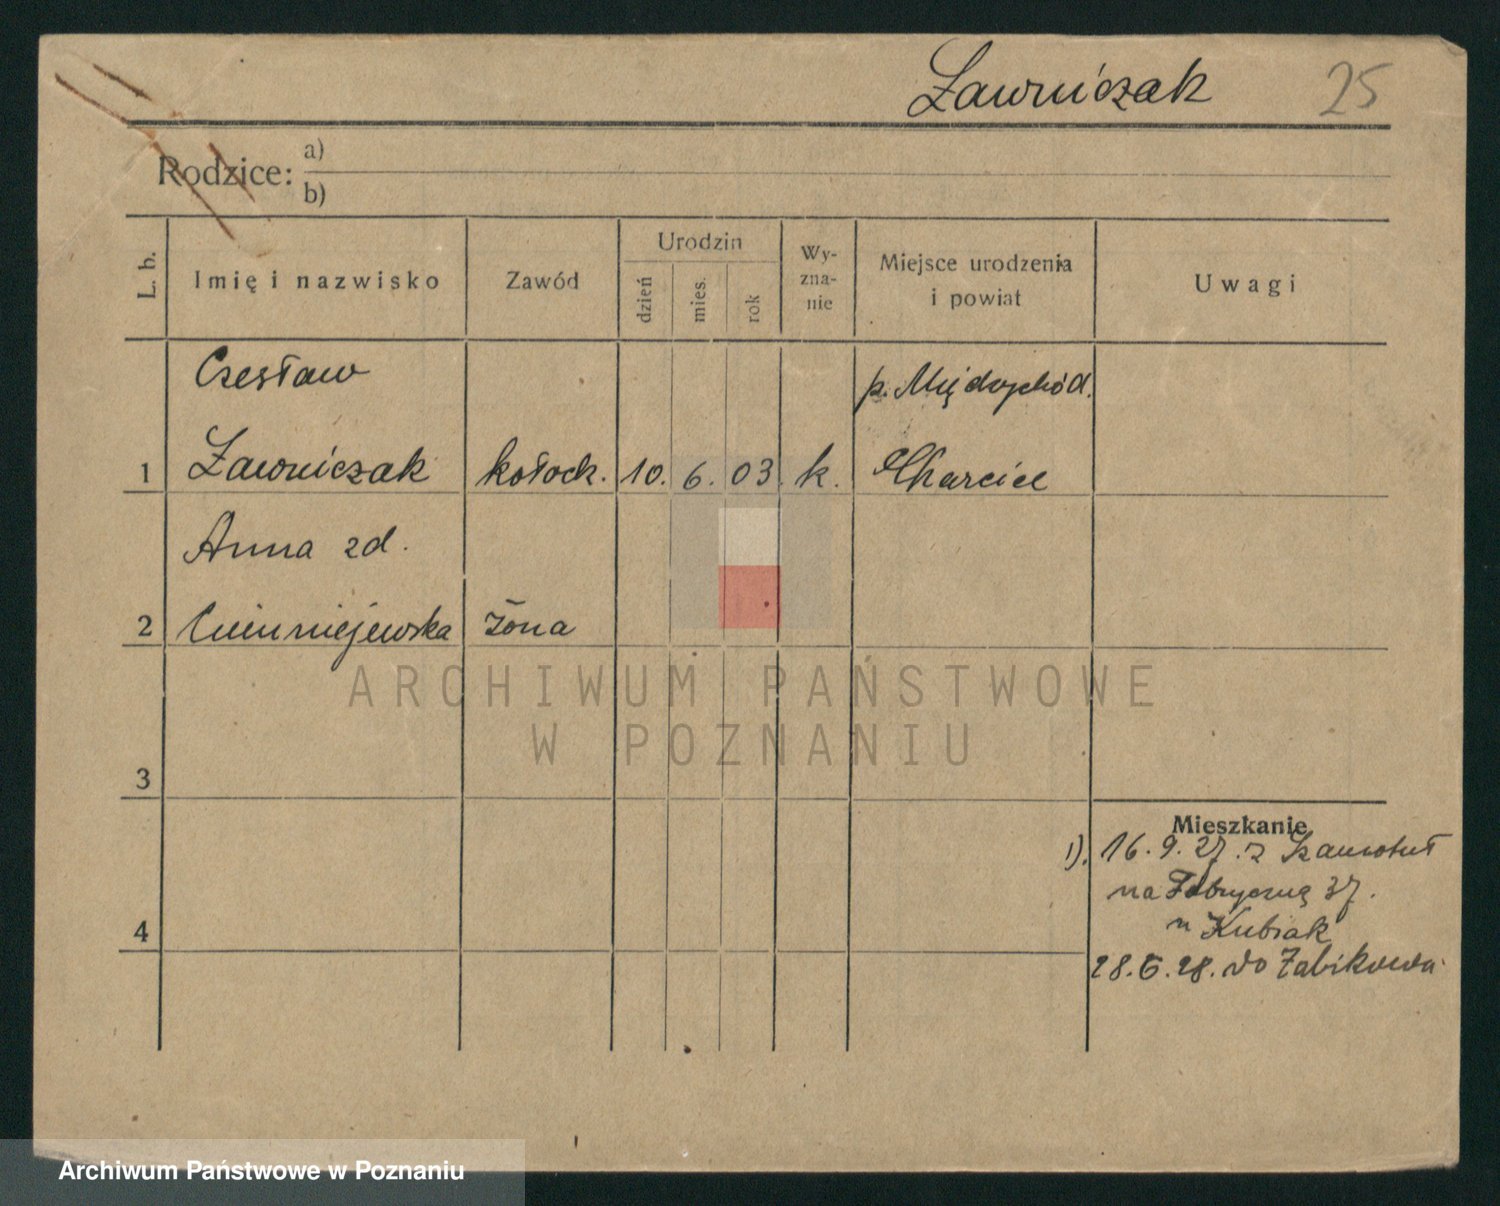 Ławniczak 25
Rodzice: a)
b)
L. b. Imię i nazwisko Zawód Urodzin dzień mies. rok Wy-zna-nie Miejsce urodzenia i powiat Uwagi
Czesław p. Międzychód.
1 Ławniczak kołodz. 10. 6. 03 k. Charcice
Anna zd.
2 żona
ARCHIWUM PAŃSTWOWE
W POZNANIU
3
Mieszkanie
1). 16. 9. 27. z Szamotuł
na Fabryczną 37.
u Kubiak
4
28. 6. 28. do Żabikowa
Archiwum Państwowe w Poznaniu